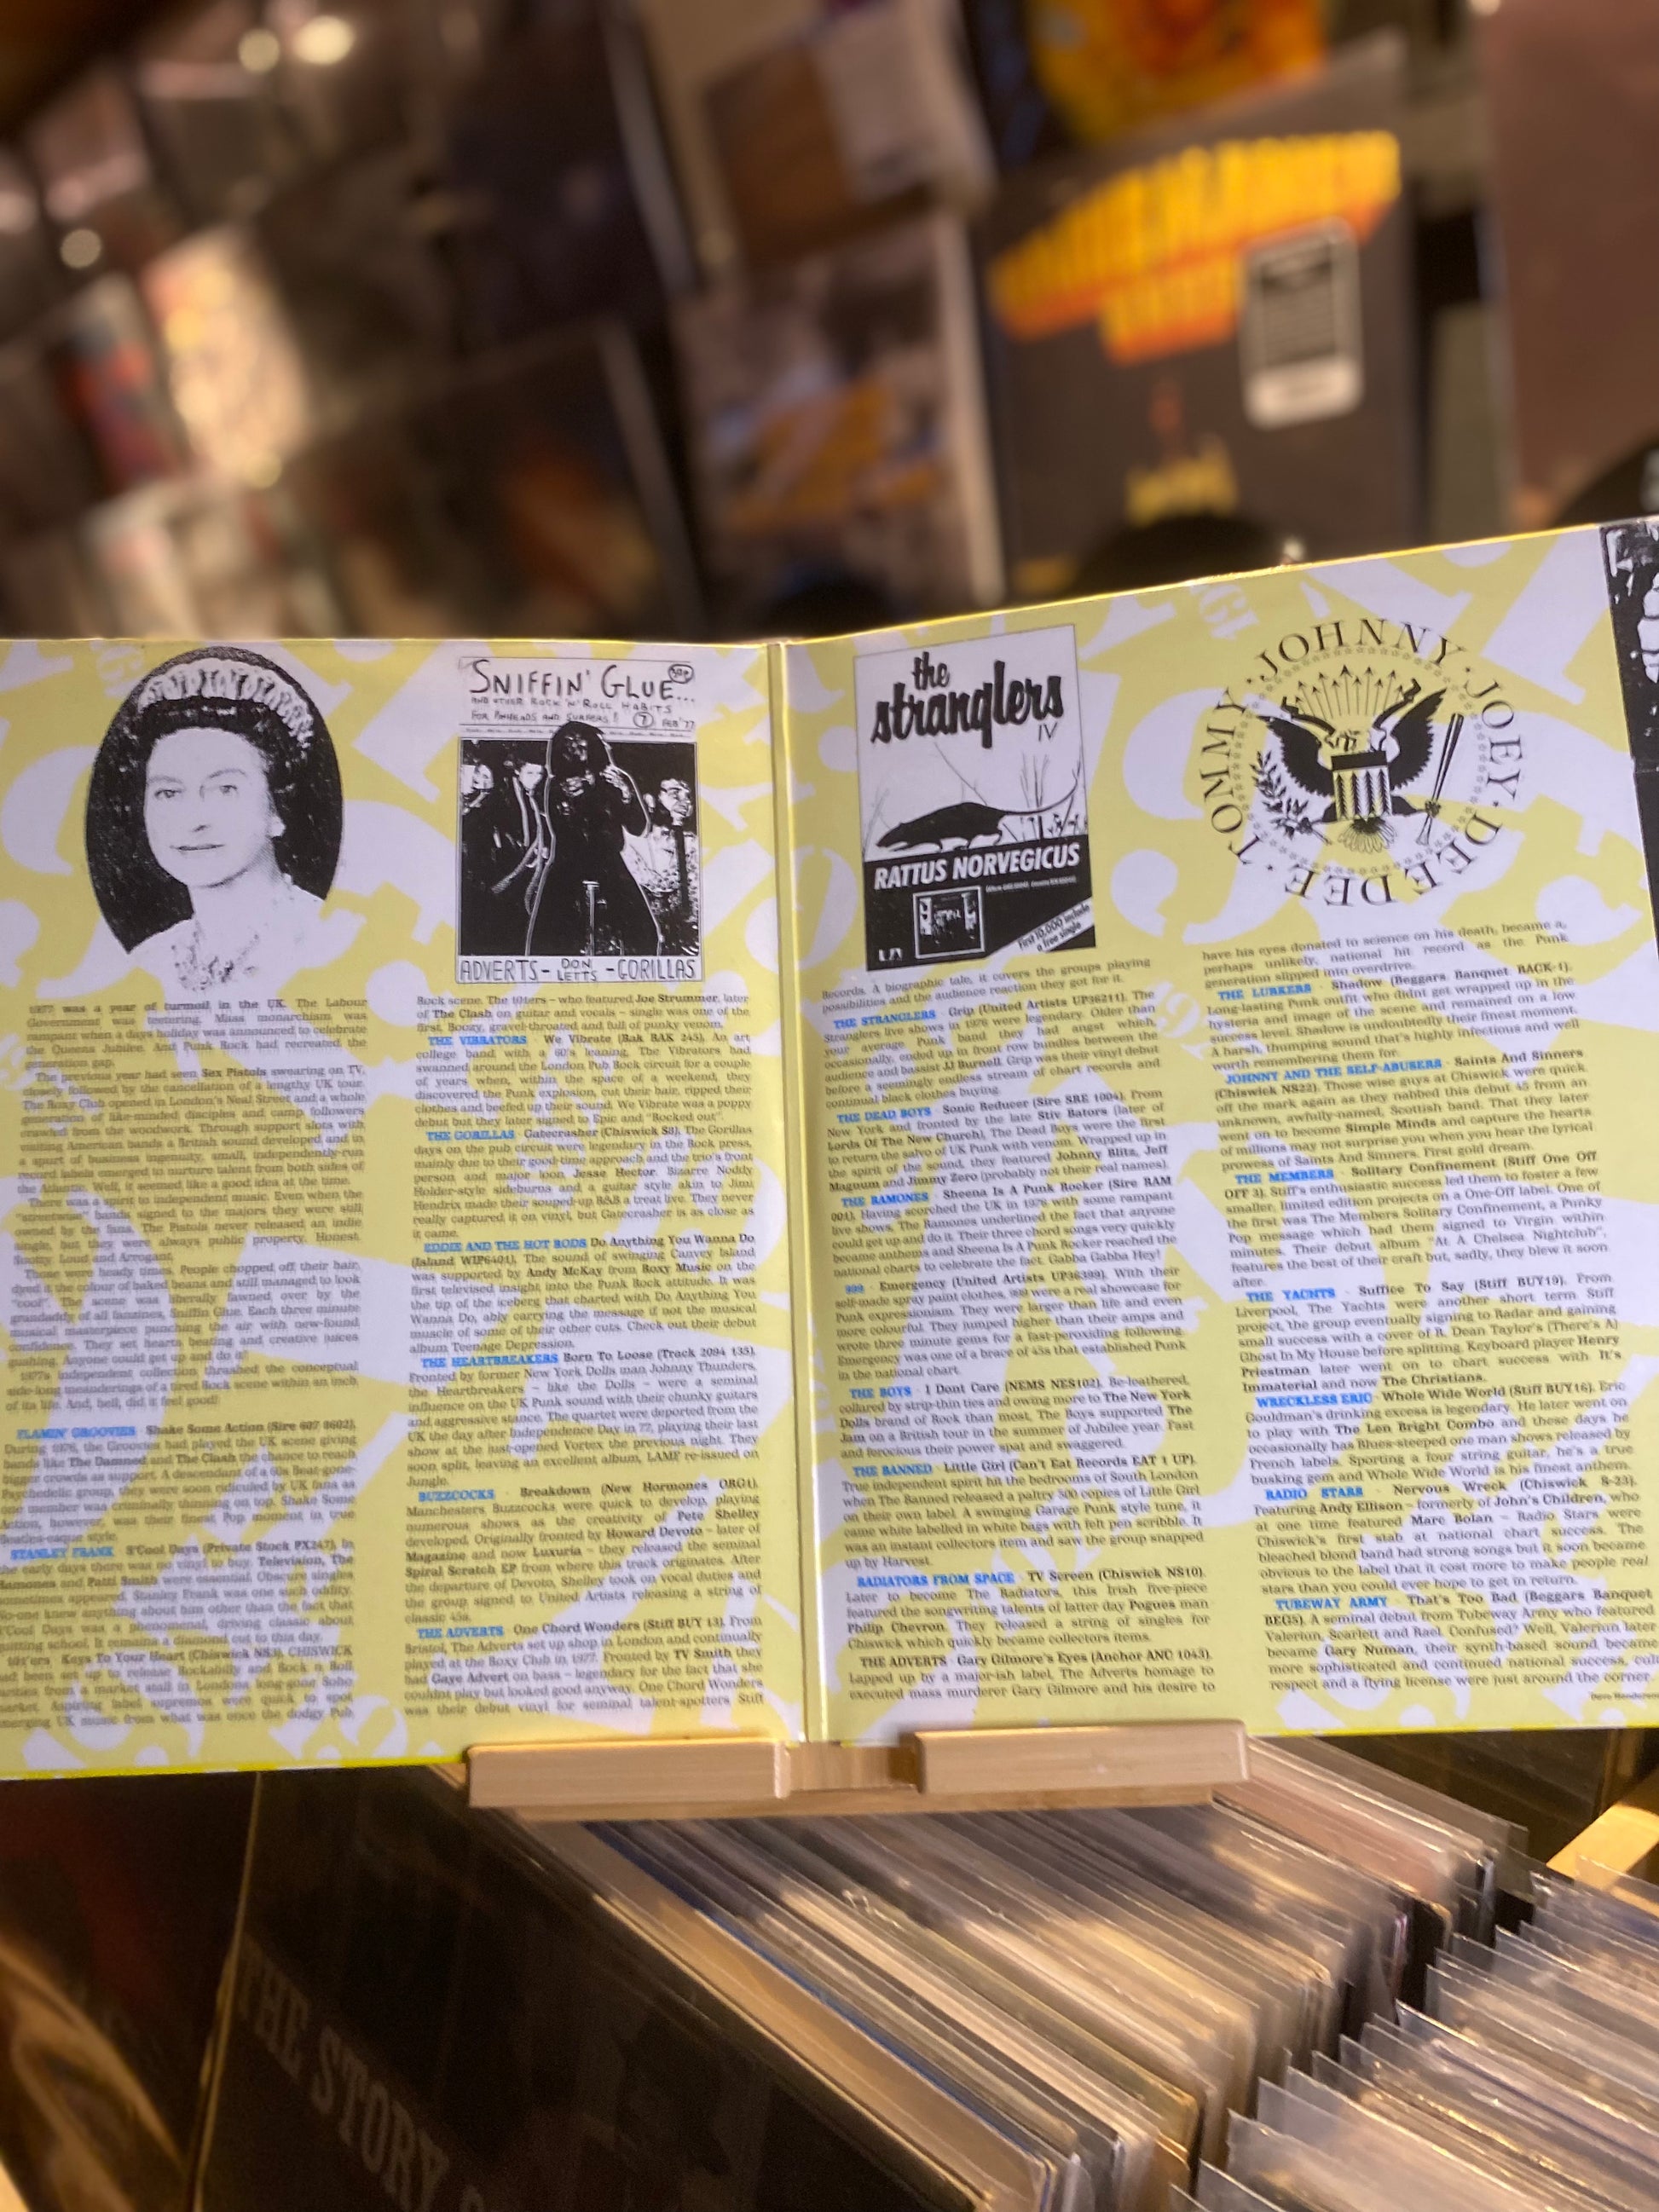 SNIFFIN' GLUE...
AND OTHER ROCK 'N' ROLL HABITS
FOR PINHEADS AND SURFERS! 7 FEB '77
ADVERTS - DON LETTS - GORILLAS
1977 was a year of turmoil in the UK. The Labour
Government was teetering. Mass monarchism was
rampant when a days holiday was announced to celebrate
the Queens Jubilee. And Punk Rock had recreated the
generation gap.
The previous year had seen Sex Pistols swearing on TV,
closely followed by the cancellation of a lengthy UK tour.
The Roxy Club opened in London's Neal Street and a whole
generation of like-minded disciples and camp followers
crawled from the woodwork. Through support slots with
visiting American bands a British sound developed and in
a spurt of business ingenuity, small, independently-run
record labels emerged to nurture talent from both sides of
the Atlantic. Well, it seemed like a good idea at the time.
There was a spirit to independent music. Even when the
"streetwise" bands signed to the majors they were still
owned by the fans. The Pistols never released an indie
single, but they were always public property. Honest.
Snotty. Loud and Arrogant.
Those were heady times. People chopped off their hair,
dyed it the colour of baked beans and still managed to look
"cool". The scene was liberally fawned over by the
grandaddy of all fanzines, Sniffin Glue. Each three minute
musical masterpiece punching the air with new-found
confidence. They set hearts beating and creative juices
gushing. Anyone could get up and do it!
1977s independent collection thrashed the conceptual
side-long meanderings of a tired Rock scene within an inch
of its life. And, hell, did it feel good!
FLAMIN' GROOVIES Shake Some Action (Sire 607 8602).
During 1976, the Groovies had played the UK scene giving
bands like The Damned and The Clash the chance to reach
bigger crowds as support. A descendant of a 60s Beat-gone-
Psychedelic group, they were soon ridiculed by UK fans as
one member was criminally thinning on top. Shake Some
Action, however, was their finest Pop moment in true
Beatles-esque style.
STANLEY FRANK S'Cool Days (Private Stock PX247). In
the early days there was no vinyl to buy. Television, The
Ramones and Patti Smith were essential. Obscure singles
sometimes appeared. Stanley Frank was one such oddity.
No-one knew anything about him other than the fact that
S'Cool Days was a phenomenal, driving classic about
quitting school. It remains a diamond cut to this day.
101'ers Keys To Your Heart (Chiswick NS3). CHISWICK
had been set up to release Rockabilly and Rock n Roll
rarities from a market stall in Londons long-gone Soho
market. Aspiring label supremos were quick to spot
emerging UK music from what was once the dodgy Pub
Rock scene. The 101ers – who featured Joe Strummer, later
of The Clash on guitar and vocals – single was one of the
first. Boozy, gravel-throated and full of punky venom.
THE VIBRATORS - We Vibrate (Rak RAK 245). An art
college band with a 60's leaning, The Vibrators had
swanned around the London Pub Rock circuit for a couple
of years when, within the space of a weekend, they
discovered the Punk explosion, cut their hair, ripped their
clothes and beefed up their sound. We Vibrate was a poppy
debut but they later signed to Epic and "Rocked out".
THE GORILLAS - Gatecrasher (Chiswick S8). The Gorillas
days on the pub circuit were legendary in the Rock press,
mainly due to their good-time approach and the trio's front
person and major loon, Jesse Hector. Bizarre Noddy
Holder-style sideburns and a guitar style akin to Jimi
Hendrix made their souped-up R&B a treat live. They never
really captured it on vinyl, but Gatecrasher is as close as
it came.
EDDIE AND THE HOT RODS Do Anything You Wanna Do
(Island WIP6401). The sound of swinging Canvey Island
was supported by Andy McKay from Roxy Music on the
first televised insight into the Punk Rock attitude. It was
the tip of the iceberg that charted with Do Anything You
Wanna Do, ably carrying the message if not the musical
muscle of some of their other cuts. Check out their debut
album Teenage Depression.
THE HEARTBREAKERS Born To Loose (Track 2094 135).
Fronted by former New York Dolls man Johnny Thunders,
the Heartbreakers – like the Dolls – were a seminal
influence on the UK Punk sound with their chunky guitars
and aggressive stance. The quartet were deported from the
UK the day after Independence Day in 77, playing their last
show at the just-opened Vortex the previous night. They
soon split, leaving an excellent album, LAMF re-issued on
Jungle.
BUZZCOCKS - Breakdown (New Hormones ORG1).
Manchesters Buzzcocks were quick to develop, playing
numerous shows as the creativity of Pete Shelley
developed. Originally fronted by Howard Devoto – later of
Magazine and now Luxuria – they released the seminal
Spiral Scratch EP from where this track originates. After
the departure of Devoto, Shelley took on vocal duties and
the group signed to United Artists releasing a string of
classic 45s.
THE ADVERTS One Chord Wonders (Stiff BUY 13). From
Bristol, The Adverts set up shop in London and continually
played at the Roxy Club in 1977. Fronted by TV Smith they
had Gaye Advert on bass – legendary for the fact that she
couldnt play but looked good anyway. One Chord Wonders
was their debut vinyl for seminal talent-spotters Stiff
the
stranglers
IV
RATTUS NORVEGICUS
First 10,000 include
a free single
UA
Records. A biographic tale, it covers the groups playing
possibilities and the audience reaction they got for it.
THE STRANGLERS - Grip (United Artists UP36211). The
Stranglers live shows in 1976 were legendary. Older than
your average Punk band they had angst which,
occasionally, ended up in front row bundles between the
audience and bassist JJ Burnell. Grip was their vinyl debut
before a seemingly endless stream of chart records and
continual black clothes buying.
THE DEAD BOYS - Sonic Reducer (Sire SRE 1004). From
New York and fronted by the late Stiv Bators (later of
Lords Of The New Church), The Dead Boys were the first
to return the salvo of UK Punk with venom. Wrapped up in
the spirit of the sound, they featured Johnny Blitz, Jeff
Magnum and Jimmy Zero (probably not their real names).
THE RAMONES - Sheena Is A Punk Rocker (Sire RAM
001). Having scorched the UK in 1976 with some rampant
live shows, The Ramones underlined the fact that anyone
could get up and do it. Their three chord songs very quickly
became anthems and Sheena Is A Punk Rocker reached the
national charts to celebrate the fact. Gabba Gabba Hey!
999 - Emergency (United Artists UP36399). With their
self-made spray paint clothes, 999 were a real showcase for
Punk expressionism. They were larger than life and even
more colourful. They jumped higher than their amps and
wrote three minute gems for a fast-peroxiding following.
Emergency was one of a brace of 45s that established Punk
in the national chart.
THE BOYS - I Dont Care (NEMS NES102). Be-leathered,
collared by strip-thin ties and owing more to The New York
Dolls brand of Rock than most, The Boys supported The
Jam on a British tour in the summer of Jubilee year. Fast
and ferocious their power spat and swaggered.
THE BANNED - Little Girl (Can't Eat Records EAT 1 UP).
True independent spirit hit the bedrooms of South London
when The Banned released a paltry 500 copies of Little Girl
on their own label. A swinging Garage Punk style tune, it
came white labelled in white bags with felt pen scribble. It
was an instant collectors item and saw the group snapped
up by Harvest.
RADIATORS FROM SPACE - TV Screen (Chiswick NS10).
Later to become The Radiators, this Irish five-piece
featured the songwriting talents of latter day Pogues man
Philip Chevron. They released a string of singles for
Chiswick which quickly became collectors items.
THE ADVERTS - Gary Gilmore's Eyes (Anchor ANC 1043).
Lapped up by a major-ish label, The Adverts homage to
executed mass murderer Gary Gilmore and his desire to
TOMMY · JOHNNY · JOEY · DEE DEE ·
have his eyes donated to science on his death, became a,
perhaps unlikely, national hit record as the Punk
generation slipped into overdrive.
THE LURKERS - Shadow (Beggars Banquet BACK 1).
Long-lasting Punk outfit who didnt get wrapped up in the
hysteria and image of the scene and remained on a low
success level. Shadow is undoubtedly their finest moment.
A harsh, thumping sound that's highly infectious and well
worth remembering them for.
JOHNNY AND THE SELF-ABUSERS - Saints And Sinners
(Chiswick NS22). Those wise guys at Chiswick were quick
off the mark again as they nabbed this debut 45 from an
unknown, awfully-named, Scottish band. That they later
went on to become Simple Minds and capture the hearts
of millions may not surprise you when you hear the lyrical
prowess of Saints And Sinners. First gold dream.
THE MEMBERS - Solitary Confinement (Stiff One Off
OFF 3). Stiff's enthusiastic success led them to foster a few
smaller, limited edition projects on a One-Off label. One of
the first was The Members Solitary Confinement, a Punky
Pop message which had them signed to Virgin within
minutes. Their debut album "At A Chelsea Nightclub",
features the best of their craft but, sadly, they blew it soon
after.
THE YACHTS - Suffice To Say (Stiff BUY19). From
Liverpool, The Yachts were another short term Stiff
project, the group eventually signing to Radar and gaining
small success with a cover of R. Dean Taylor's (There's A)
Ghost In My House before splitting. Keyboard player Henry
Priestman later went on to chart success with It's
Immaterial and now The Christians.
WRECKLESS ERIC - Whole Wide World (Stiff BUY16). Eric
Gouldman's drinking excess is legendary. He later went on
to play with The Len Bright Combo and these days he
occasionally has Blues-steeped one man shows released by
French labels. Sporting a four string guitar, he's a true
busking gem and Whole Wide World is his finest anthem.
RADIO STARS - Nervous Wreck (Chiswick S-23).
Featuring Andy Ellison – formerly of John's Children, who
at one time featured Marc Bolan – Radio Stars were
Chiswick's first stab at national chart success. The
bleached blond band had strong songs but it soon became
obvious to the label that it cost more to make people real
stars than you could ever hope to get in return.
TUBEWAY ARMY - That's Too Bad (Beggars Banquet
BEG5). A seminal debut from Tubeway Army who featured
Valeriun, Scarlett and Rael. Confused? Well, Valeriun later
became Gary Numan, their synth-based sound became
more sophisticated and continued national success, cult
respect and a flying license were just around the corner.
Dave Henderson
THE STORY